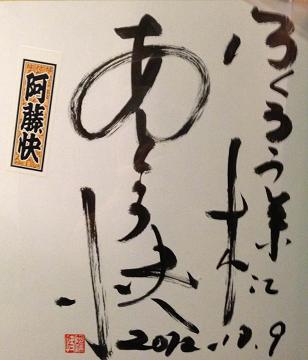 ろくろう
あとう快
2012.10.9
阿藤快